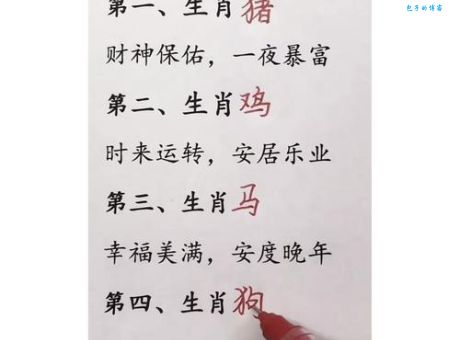 包子的博客
第一、生肖猪
财神保佑，一夜暴富
第二、生肖鸡
时来运转，安居乐业
第三、生肖马
幸福美满，安度晚年
第四、生肖狗